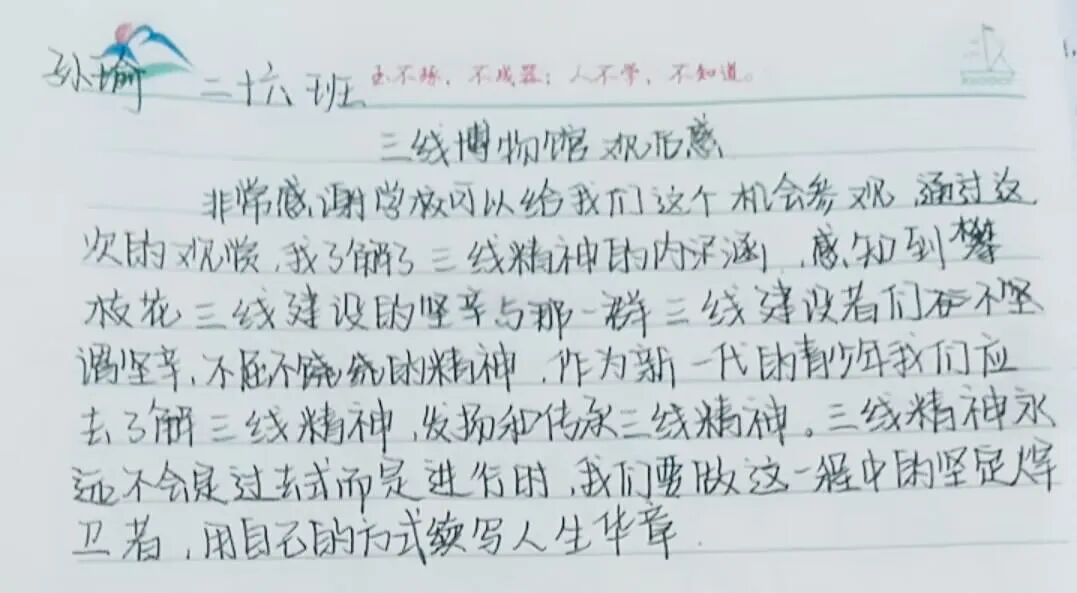 玉不琢，不成器；人不学，不知道。
孙瑜 二十六班
三线博物馆观后感
非常感谢学校可以给我们这个机会参观，通过这
次的观赏，我了解了三线精神的内深涵，感知到攀
枝花三线建设的坚辛与那一群三线建设者们不坚
谓坚辛，不屈不饶的精神，作为新一代的青少年我们应
去了解三线精神，发扬和传承三线精神。三线精神永
远不会是过去式而是进行时，我们要做这一程中的坚定捍
卫者，用自己的方式续写人生华章.